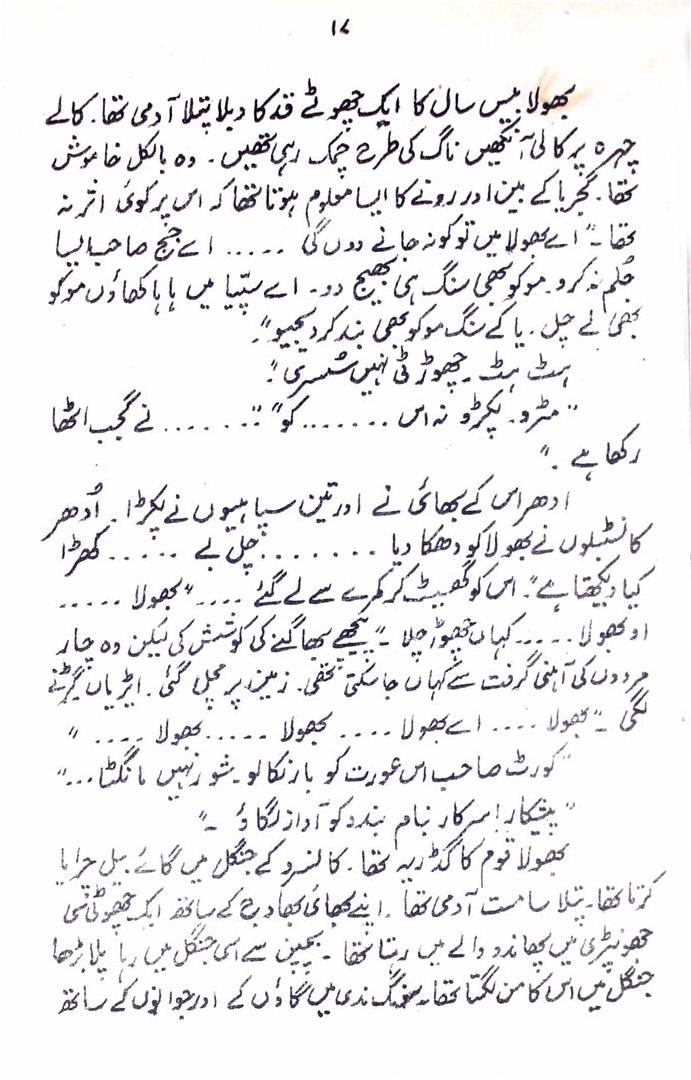 ۱۷
بھولا بیس سال کا ایک چھوٹے قد کا دبلا پتلا آدمی تھا۔ کالے
چہرہ پر کالی آنکھیں ناگ کی طرح چمک رہی تھیں۔ وہ بالکل خاموش
تھا۔ گجریا کے بین اور رونے کا ایسا معلوم ہوتا تھا کہ اس پر کوئی اثر نہ
تھا۔ "اے بھولا میں تو کو نہ جانے دوں گی ..... اے جج صاحب ایسا
جُلم نہ کرو۔ موکو بھی سنگ ہی بھیج دو۔ اے سپّیا میں ہا ہا کھاؤں موکو
بھی لے چل۔ یا کے سنگ موکو بھی بند کر دیجیو"۔
ہٹ ہٹ۔ چھوڑتی نہیں سُسری"۔
"مٹرو۔ پکڑو نہ اس ....... کو" "....... نے گجب اٹھا
رکھا ہے۔"
ادھر اس کے بھائی نے اور تین سپاہیوں نے پکڑا۔ اُدھر
کانسٹبلوں نے بھولا کو دھکا دیا ....... "چل بے ..... کھڑا
کیا دیکھتا ہے"۔ اس کو گھسیٹ کر کمرے سے لے گئے .... "بھولا .....
او بھولا ..... کہاں چھوڑ چلا۔" پیچھے بھاگنے کی کوشش کی لیکن وہ چار
مردوں کی آہنی گرفت سے کہاں جا سکتی تھی۔ زمین پر مچل گئی۔ ایڑیاں رگڑنے
لگی۔ "بھولا .... اے بھولا .... بھولا ..... بھولا ...."
"کورٹ صاحب اس عورت کو بار نکالو۔ شور نہیں مانگتا..."
"پیشکار! سرکار بنام بندو کو آواز لگاؤ۔"
بھولا قوم کا گڈریہ تھا۔ کالنرو کے جنگل میں گائے بیل چرایا
کرتا تھا۔ پتلا سا مست آدمی تھا۔ اپنے بھائی بھاوج کے ساتھ ایک چھوٹی سی
جھونپڑی میں چاندو والے میں رہتا تھا۔ بچپن سے اسی جنگل میں رہا پلا بڑھا
جنگل میں اس کا من لگتا تھا۔ سونگ ندی میں گاؤں کے اور جوانوں کے ساتھ